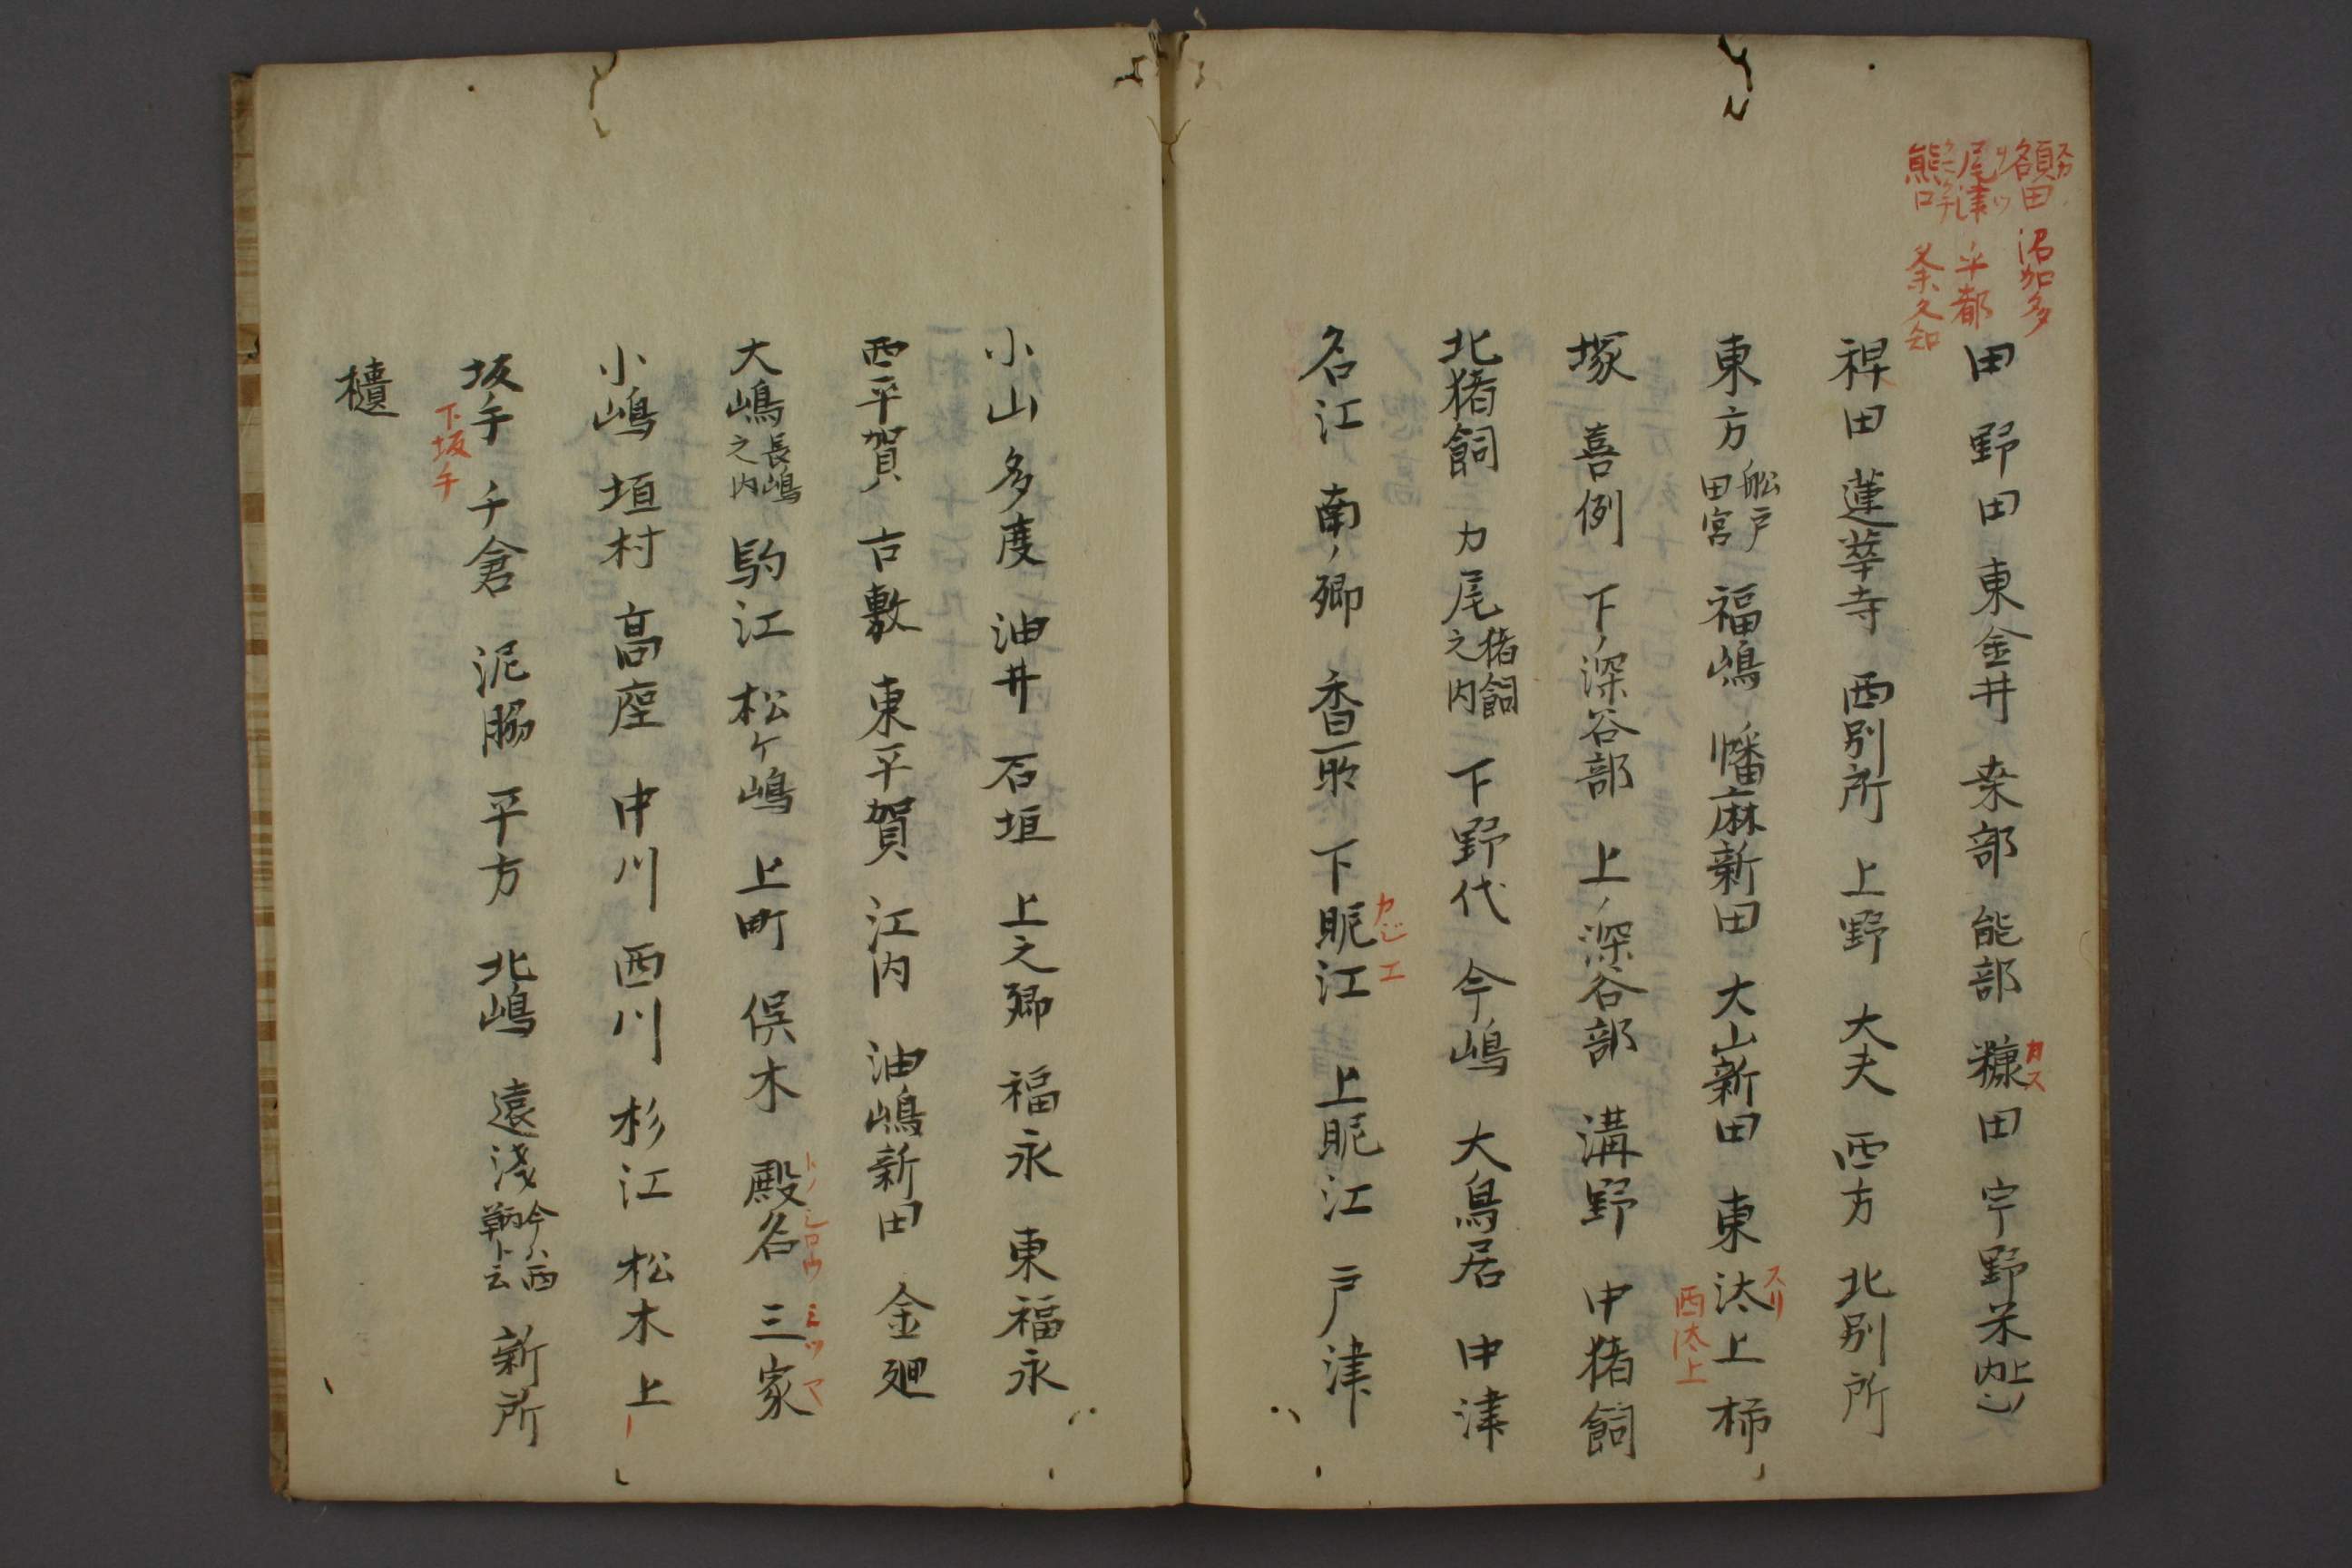 額田 沼加多
尾津 乎都
熊口 久知
田 野田 東金井 桒部 能部 糠田 宇野米
カス
稗田 蓮華寺 西別所 上野 大夫 西方 北別所
東方 舩戸 田宮 福嶋 幡麻新田 大山新田 東汰上 柿ノ
スリ
西汰上
塚 喜例 下ノ深谷部 上ノ深谷部 溝野 中猪飼
北猪飼 力尾 猪飼之内 下野代 今嶋 大鳥居 中津
名江 南ノ郷 香取 下眤江 上眤江 戸津
カジエ
小山 多度 油井 石垣 上之郷 福永 東福永
西平賀 古敷 東平賀 江内 油嶋新田 金廻
大嶋 長嶋之内 駒江 松ケ嶋 上町 俣木 殿名 三家
小嶋 垣村 高座 中川 西川 杉江 松木 上
坂手 千倉 泥𦚰 平方 北嶋 遠淺 今ハ西鞆ト云 新所
下坂手
櫃